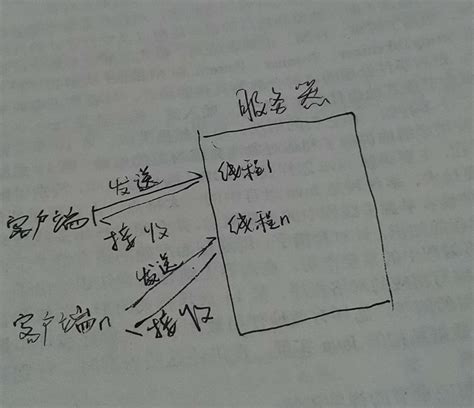 服务器
发送
线程1
客户端1
接收
线程n
发送
客户端n
接收